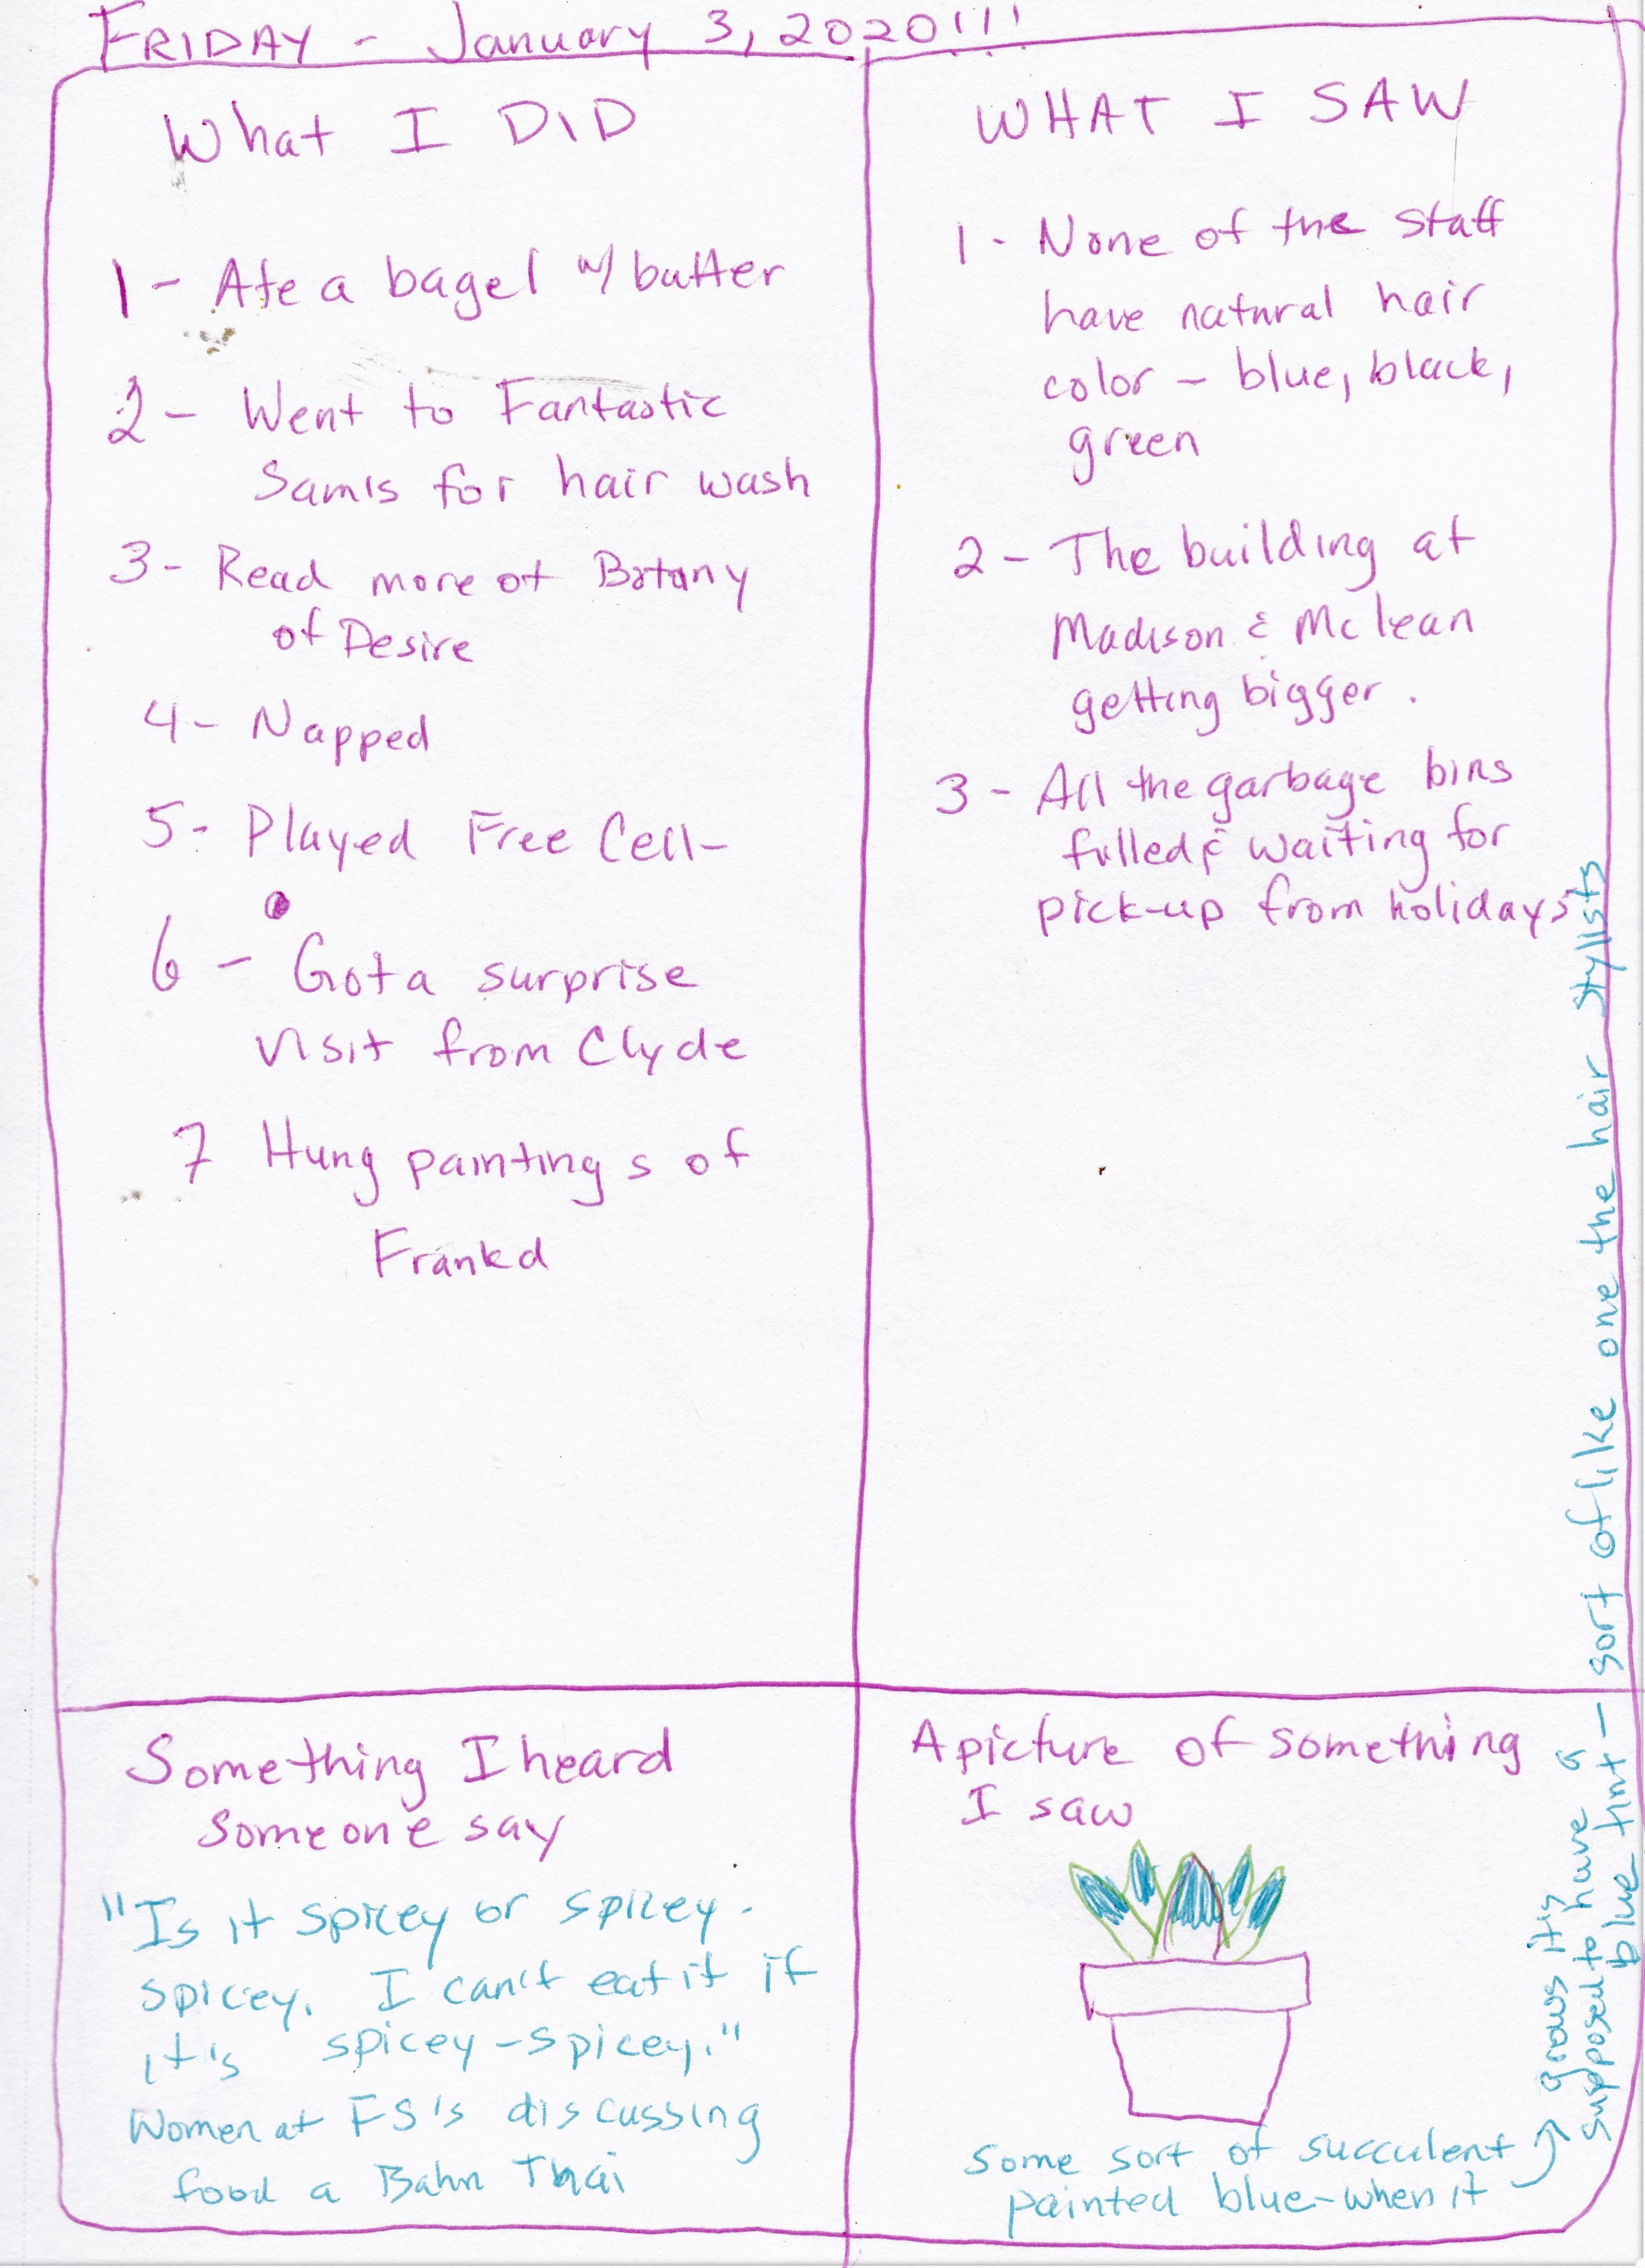 FRIDAY - January 3, 2020!!!
What I DID
1 - Ate a bagel w/ butter
2 - Went to Fantastic
Sam's for hair wash
3 - Read more of Botany
of Desire
4 - Napped
5 - Played Free Cell -
6 - Got a surprise
visit from Clyde
7 Hung paintings of
Frankd
WHAT I SAW
1 - None of the staff
have natural hair
color - blue, black,
green
2 - The building at
Madison & Mclean
getting bigger.
3 - All the garbage bins
fulled & waiting for
pick-up from holidays
Something I heard
someone say
"Is it spicey or spicey -
spicey. I can't eat it if
it's spicey - spicey."
Women at FS's discussing
food a Bahn Thai
A picture of something
I saw
Some sort of succulent
painted blue - when it
grows it's
supposed to have a
blue tint - sort of like one the hair stylists